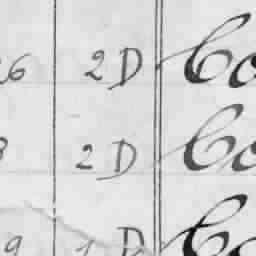 26 2 D Co
8 2 D Co
9 1 D Co